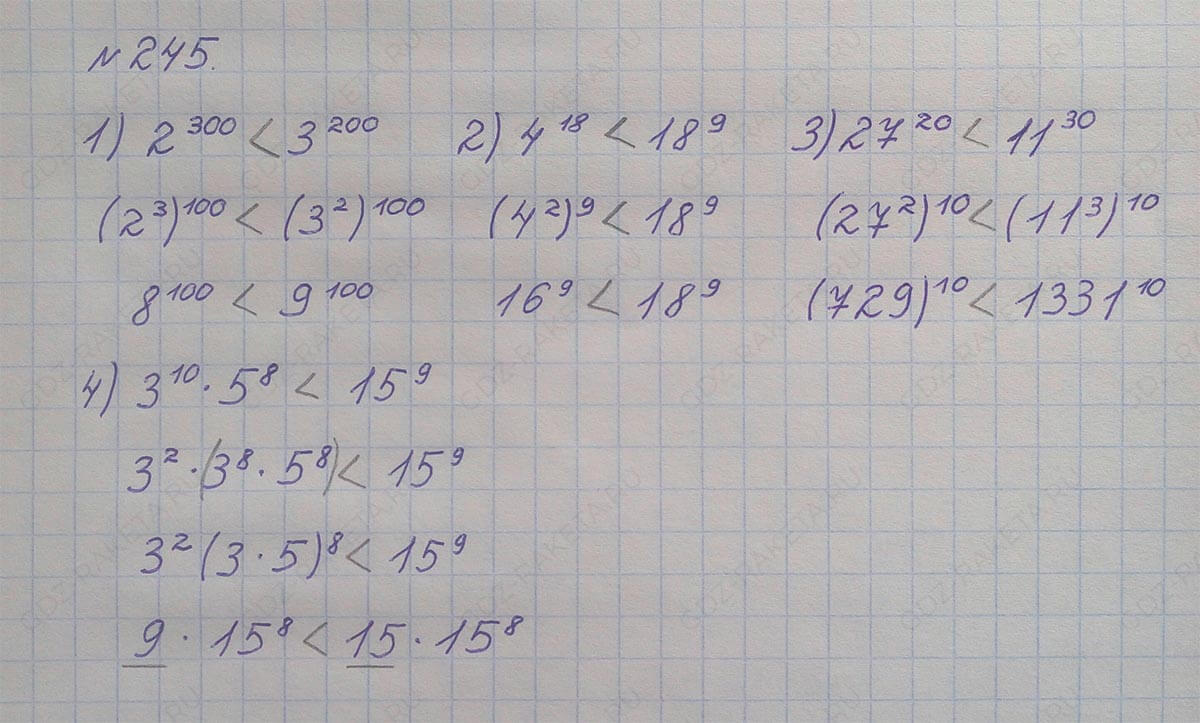 № 245.
1) 2^300 < 3^200 2) 4^18 < 18^9 3) 27^20 < 11^30
(2^3)^100 < (3^2)^100 (4^2)^9 < 18^9 (27^2)^10 < (11^3)^10
8^100 < 9^100 16^9 < 18^9 (729)^10 < 1331^10
4) 3^10 · 5^8 < 15^9
3^2 · (3^8 · 5^8) < 15^9
3^2 (3 · 5)^8 < 15^9
9 · 15^8 < 15 · 15^8
GDZ-RAKETA.RU